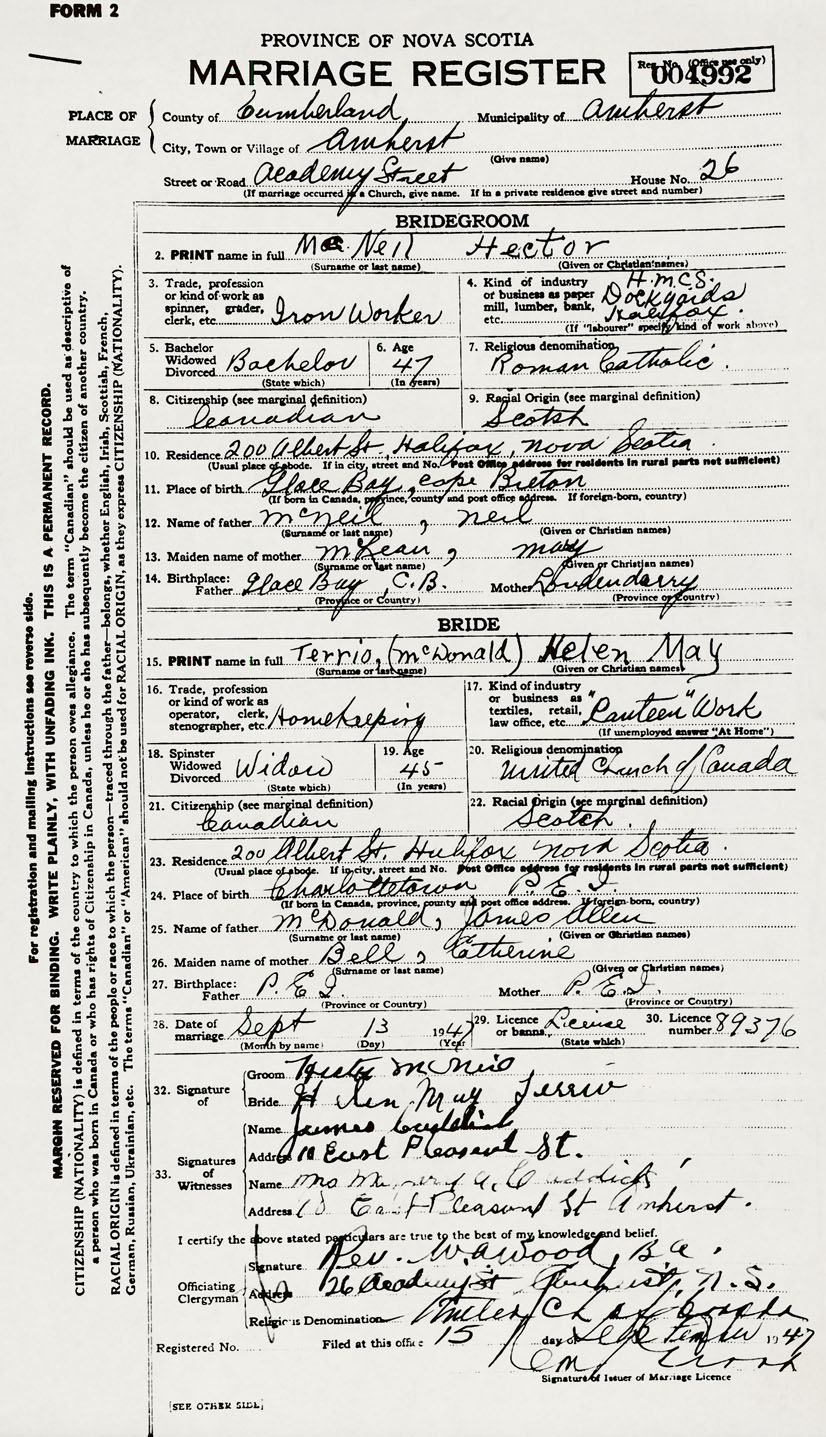 FORM 2
PROVINCE OF NOVA SCOTIA
MARRIAGE REGISTER
Reg. No. (Office use only)
004992
PLACE OF MARRIAGE
County of Cumberland Municipality of Amherst
City, Town or Village of Amherst
(Give name)
Street or Road Academy Street House No. 26
(If marriage occurred in a Church, give name. If in a private residence give street and number)
BRIDEGROOM
2. PRINT name in full Mac Neil Hector
(Surname or last name) (Given or Christian names)
3. Trade, profession or kind of work as spinner, grader, clerk, etc. Iron Worker
4. Kind of industry or business as paper mill, lumber, bank, etc. H.M.C.S. Dockyards Halifax
(If "labourer" specify kind of work above)
5. Bachelor Widowed Divorced Bachelor
(State which)
6. Age 47
(In years)
7. Religious denomination
Roman Catholic.
8. Citizenship (see marginal definition)
Canadian
9. Racial Origin (see marginal definition)
Scotsh
10. Residence 200 Albert St, Halifax, Nova Scotia.
(Usual place of abode. If in city, street and No. Post Office address for residents in rural parts not sufficient)
11. Place of birth Glace Bay, Cape Breton
(If born in Canada, province, county and post office address. If foreign-born, country)
12. Name of father McNeil, Neil
(Surname or last name) (Given or Christian names)
13. Maiden name of mother McLean, May
(Surname or last name) (Given or Christian names)
14. Birthplace: Father Glace Bay, C.B. Mother Londenderry
(Province or Country) (Province or Country)
BRIDE
15. PRINT name in full Terrio, (McDonald) Helen May
(Surname or last name) (Given or Christian names)
16. Trade, profession or kind of work as operator, clerk, stenographer, etc. Homekeeping
17. Kind of industry or business as textiles, retail, law office, etc. "Canteen" Work
(If unemployed answer "At Home")
18. Spinster Widowed Divorced Widow
(State which)
19. Age 45
(In years)
20. Religious denomination
United Church of Canada
21. Citizenship (see marginal definition)
Canadian
22. Racial Origin (see marginal definition)
Scotch.
23. Residence 200 Albert St. Halifax Nova Scotia.
(Usual place of abode. If in city, street and No. Post Office address for residents in rural parts not sufficient)
24. Place of birth Charlottetown P.E.I.
(If born in Canada, province, county and post office address. If foreign-born, country)
25. Name of father McDonald, James Allen
(Surname or last name) (Given or Christian names)
26. Maiden name of mother Bell, Catherine
(Surname or last name) (Given or Christian names)
27. Birthplace: Father P.E.I. Mother P.E.I.
(Province or Country) (Province or Country)
28. Date of marriage Sept 13 1947
(Month by name) (Day) (Year)
29. Licence or banns License
(State which)
30. Licence number 89376
32. Signature of
Groom Hector McNeil
Bride Helen May Terrio
33. Signatures of Witnesses
Name James
Address 10 East Pleasant St.
Name Mrs A.
Address 10 East Pleasant St Amherst.
I certify the above stated particulars are true to the best of my knowledge and belief.
Officiating Clergyman
Signature Rev. W.A. Wood, B.A.
Address 26 Academy St Amherst, N.S.
Religious Denomination United Ch of Canada
Registered No. Filed at this office 15 day of September 1947
Signature of Issuer of Marriage Licence
[SEE OTHER SIDE]
For registration and mailing instructions see reverse side.
MARGIN RESERVED FOR BINDING. WRITE PLAINLY, WITH UNFADING INK. THIS IS A PERMANENT RECORD.
CITIZENSHIP (NATIONALITY) is defined in terms of the country to which the person owes allegiance. The term "Canadian" should be used as descriptive of
a person who was born in Canada or who has rights of Citizenship in Canada, unless he or she has subsequently become the citizen of another country.
RACIAL ORIGIN is defined in terms of the people or race to which the person—traced through the father—belongs, whether English, Irish, Scottish, French,
German, Russian, Ukrainian, etc. The terms "Canadian" or "American" should not be used for RACIAL ORIGIN, as they express CITIZENSHIP (NATIONALITY).